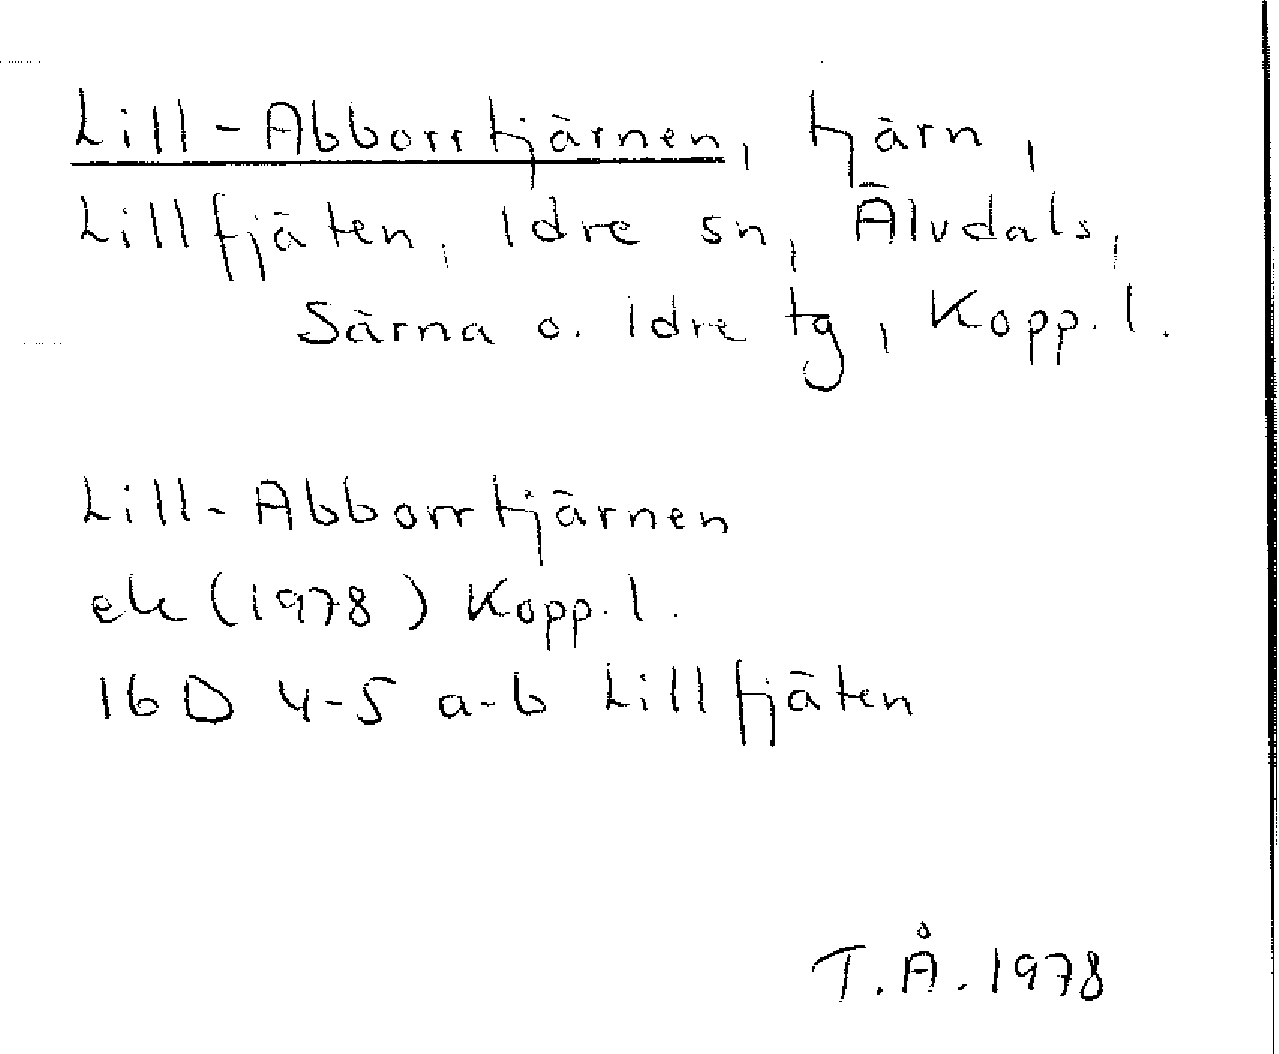 Lill-Abborrtjärnen, tjärn,
Lillfjäten, Idre sn, Älvdals,
Särna o. Idre tg, Kopp. l.
Lill-Abborrtjärnen
ek (1978) Kopp. l.
16 D 4-5 a-b Lillfjäten
T.Å. 1978